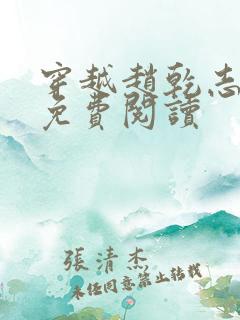 穿越趙乾志
免費閱讀
張清杰
未經同意禁止轉載